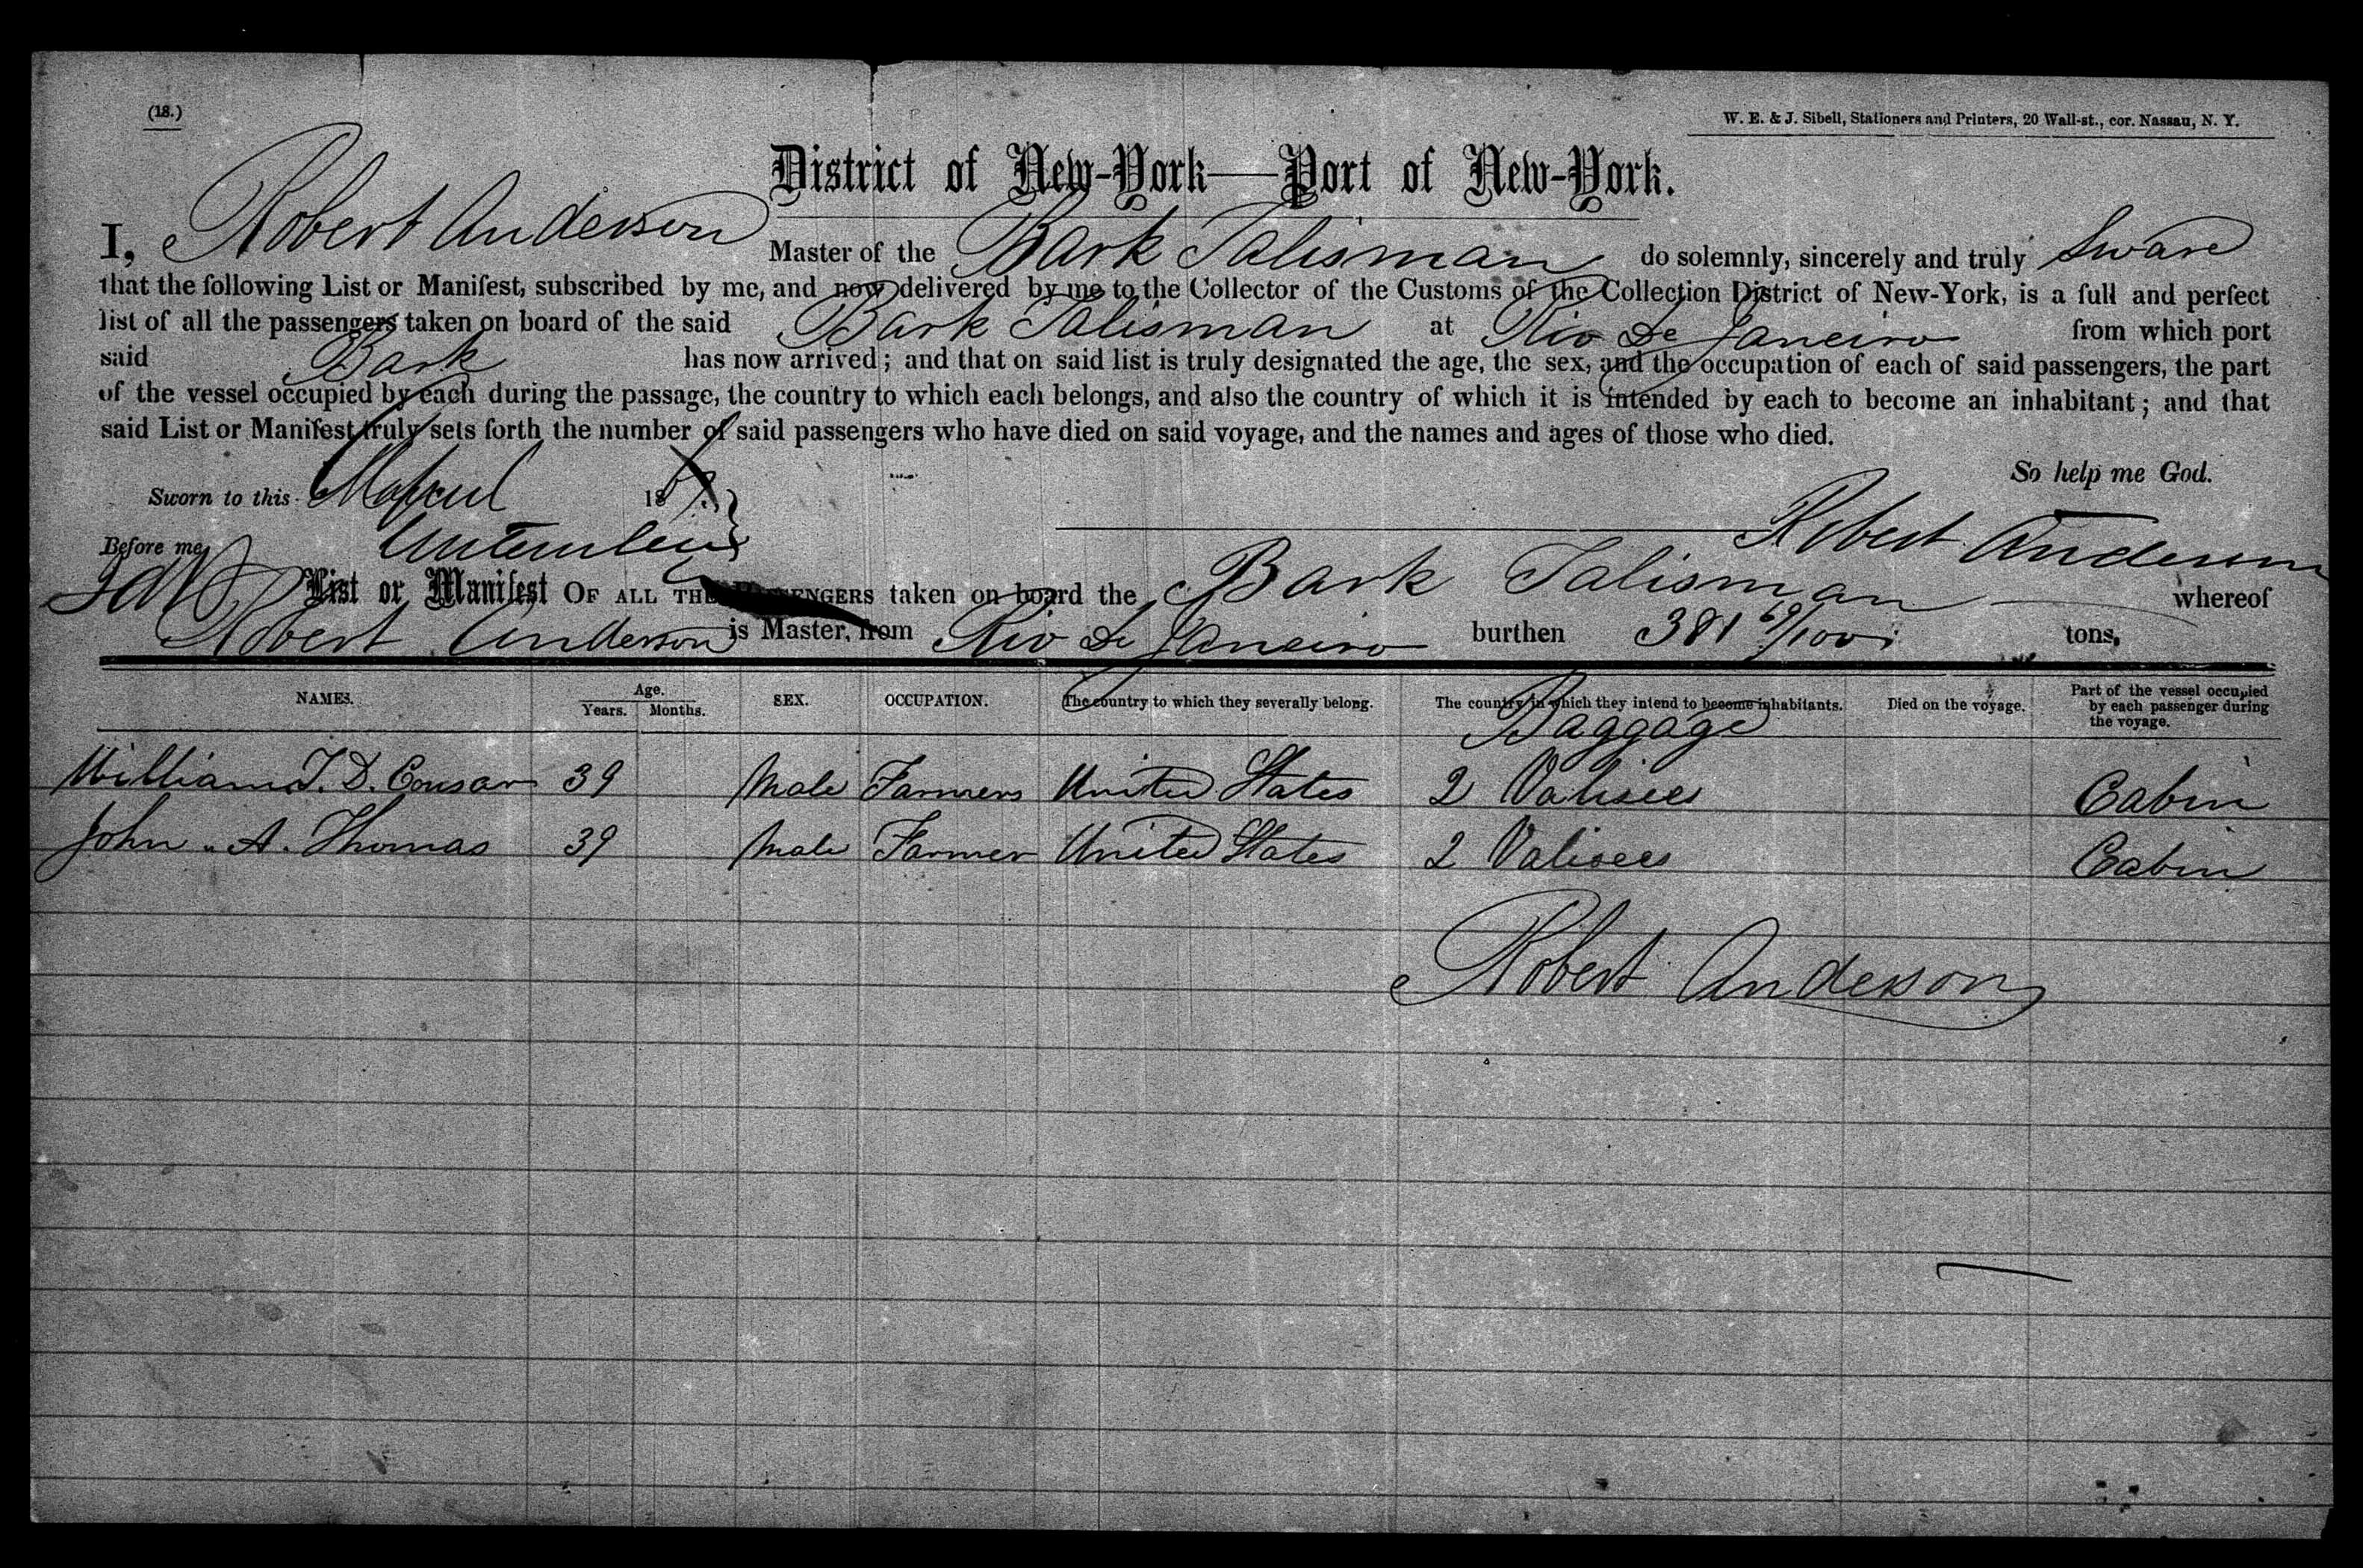 (18.)
W. E. & J. Sibell, Stationers and Printers, 20 Wall-st., cor. Nassau, N. Y.
District of New-York—Port of New-York.
I, Robert Anderson Master of the Bark Talisman do solemnly, sincerely and truly Sware
that the following List or Manifest, subscribed by me, and now delivered by me to the Collector of the Customs of the Collection District of New-York, is a full and perfect
list of all the passengers taken on board of the said Bark Talisman at Rio De Janeiro from which port
said Bark has now arrived; and that on said list is truly designated the age, the sex, and the occupation of each of said passengers, the part
of the vessel occupied by each during the passage, the country to which each belongs, and also the country of which it is intended by each to become an inhabitant; and that
said List or Manifest truly sets forth the number of said passengers who have died on said voyage, and the names and ages of those who died.
So help me God.
Sworn to this 18
Robert Anderson
Before me
List or Manifest OF ALL THE PASSENGERS taken on board the Bark Talisman whereof
Robert Anderson is Master, from Rio De Janeiro burthen 381 69/100 tons,
NAMES. Age. Years. Months. SEX. OCCUPATION. The country to which they severally belong. The country in which they intend to become inhabitants. Died on the voyage. Part of the vessel occupied by each passenger during the voyage.
Baggage
William T. D. Cousar 39 Male Farmers United States 2 Valisees Cabin
John A. Thomas 39 Male Farmer United States 2 Valisees Cabin
Robert Anderson